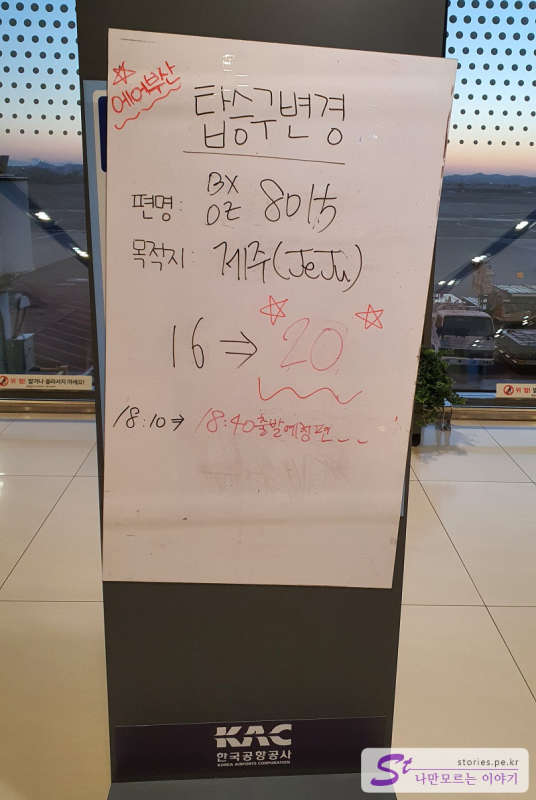 에어부산
탑승구변경
편명: BX OZ 8015
목적지: 제주(JeJu)
16 ⇒ 20
18:10 ⇒ 18:40출발예정편
위험! 밟거나 올라서지 마세요!
위험!
KAC
한국공항공사
KOREA AIRPORTS CORPORATION
St
stories.pe.kr
나만모르는 이야기